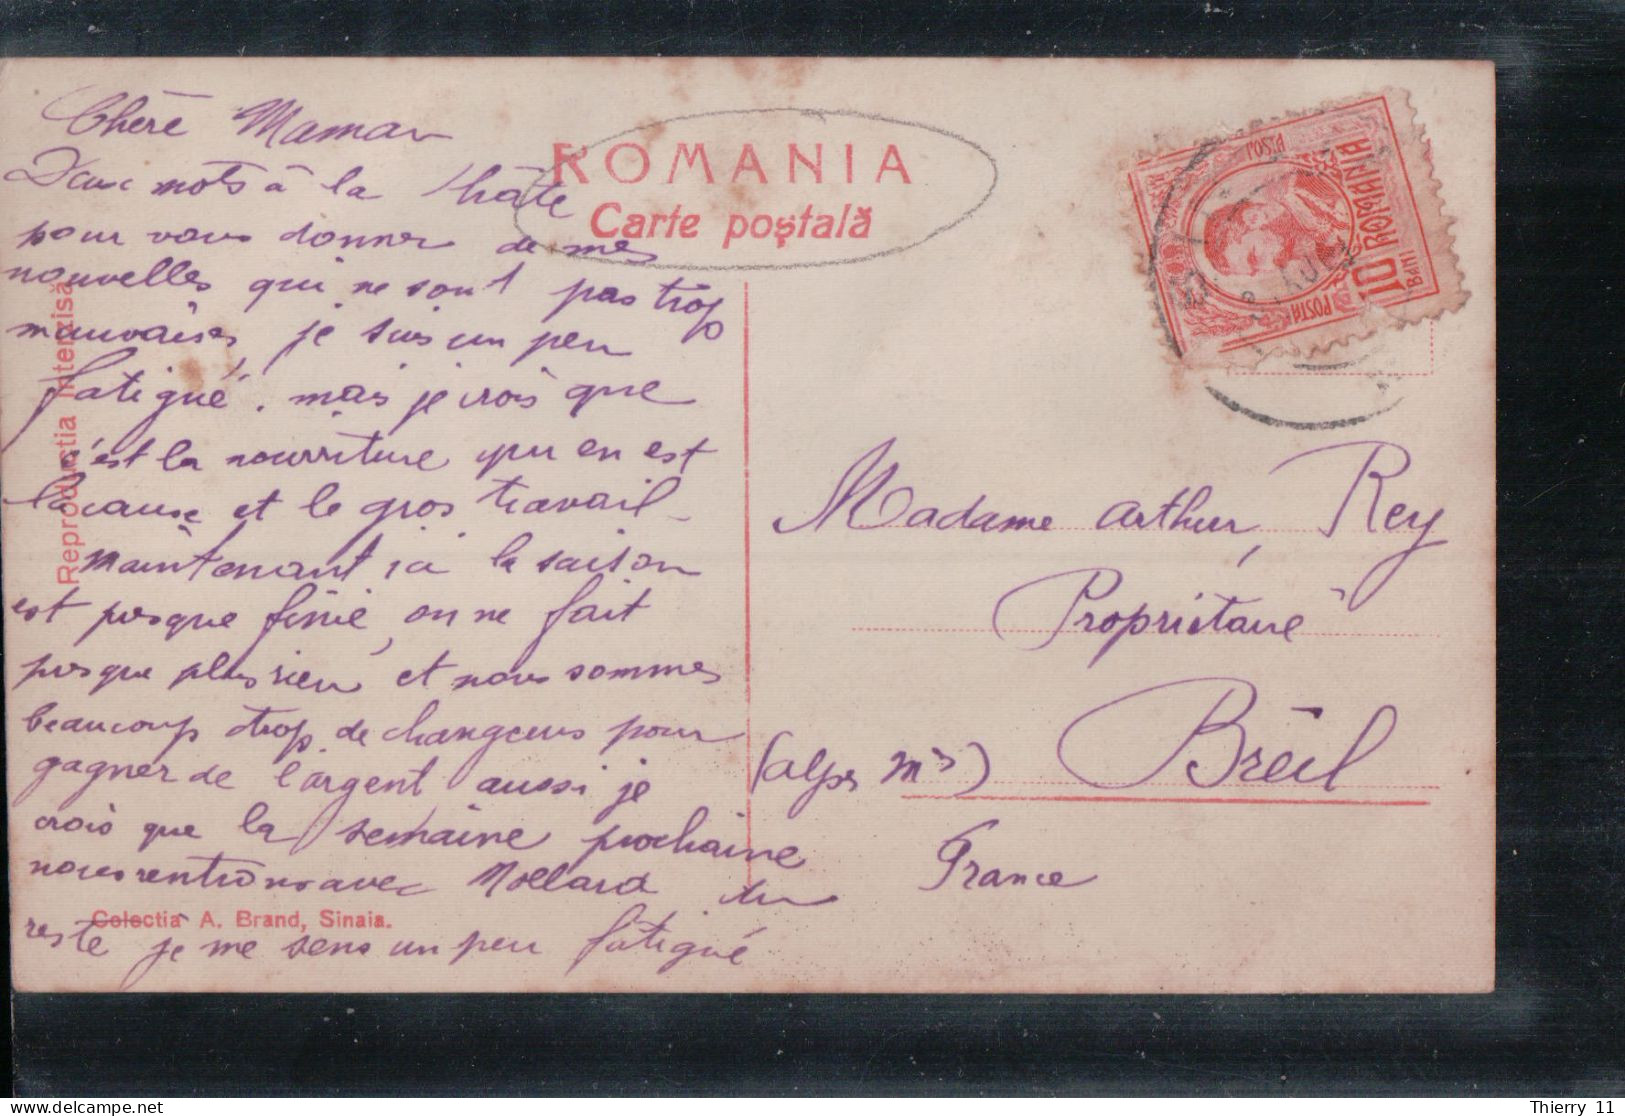 Chère Maman
Deux mots à la hâte
pour vous donner de mes
nouvelles qui ne sont pas trop
mauvaises, je suis un peu
fatigué, mais je crois que
c'est la nourriture qui en est
la cause et le gros travail
maintenant ici la saison
est presque finie, on ne fait
presque plus rien et nous sommes
beaucoup trop de changeurs pour
gagner de l'argent aussi je
crois que la semaine prochaine
nous rentrons avec Mollard du
reste je me sens un peu fatigué
ROMANIA
Carte poștală
Reproductia interzisă
Colectia A. Brand, Sinaia.
POSTA
10 ROMANIA
BANI
Madame Arthur, Rey
Propriétaire
(alpes Mes) Breil
France
Thierry 11